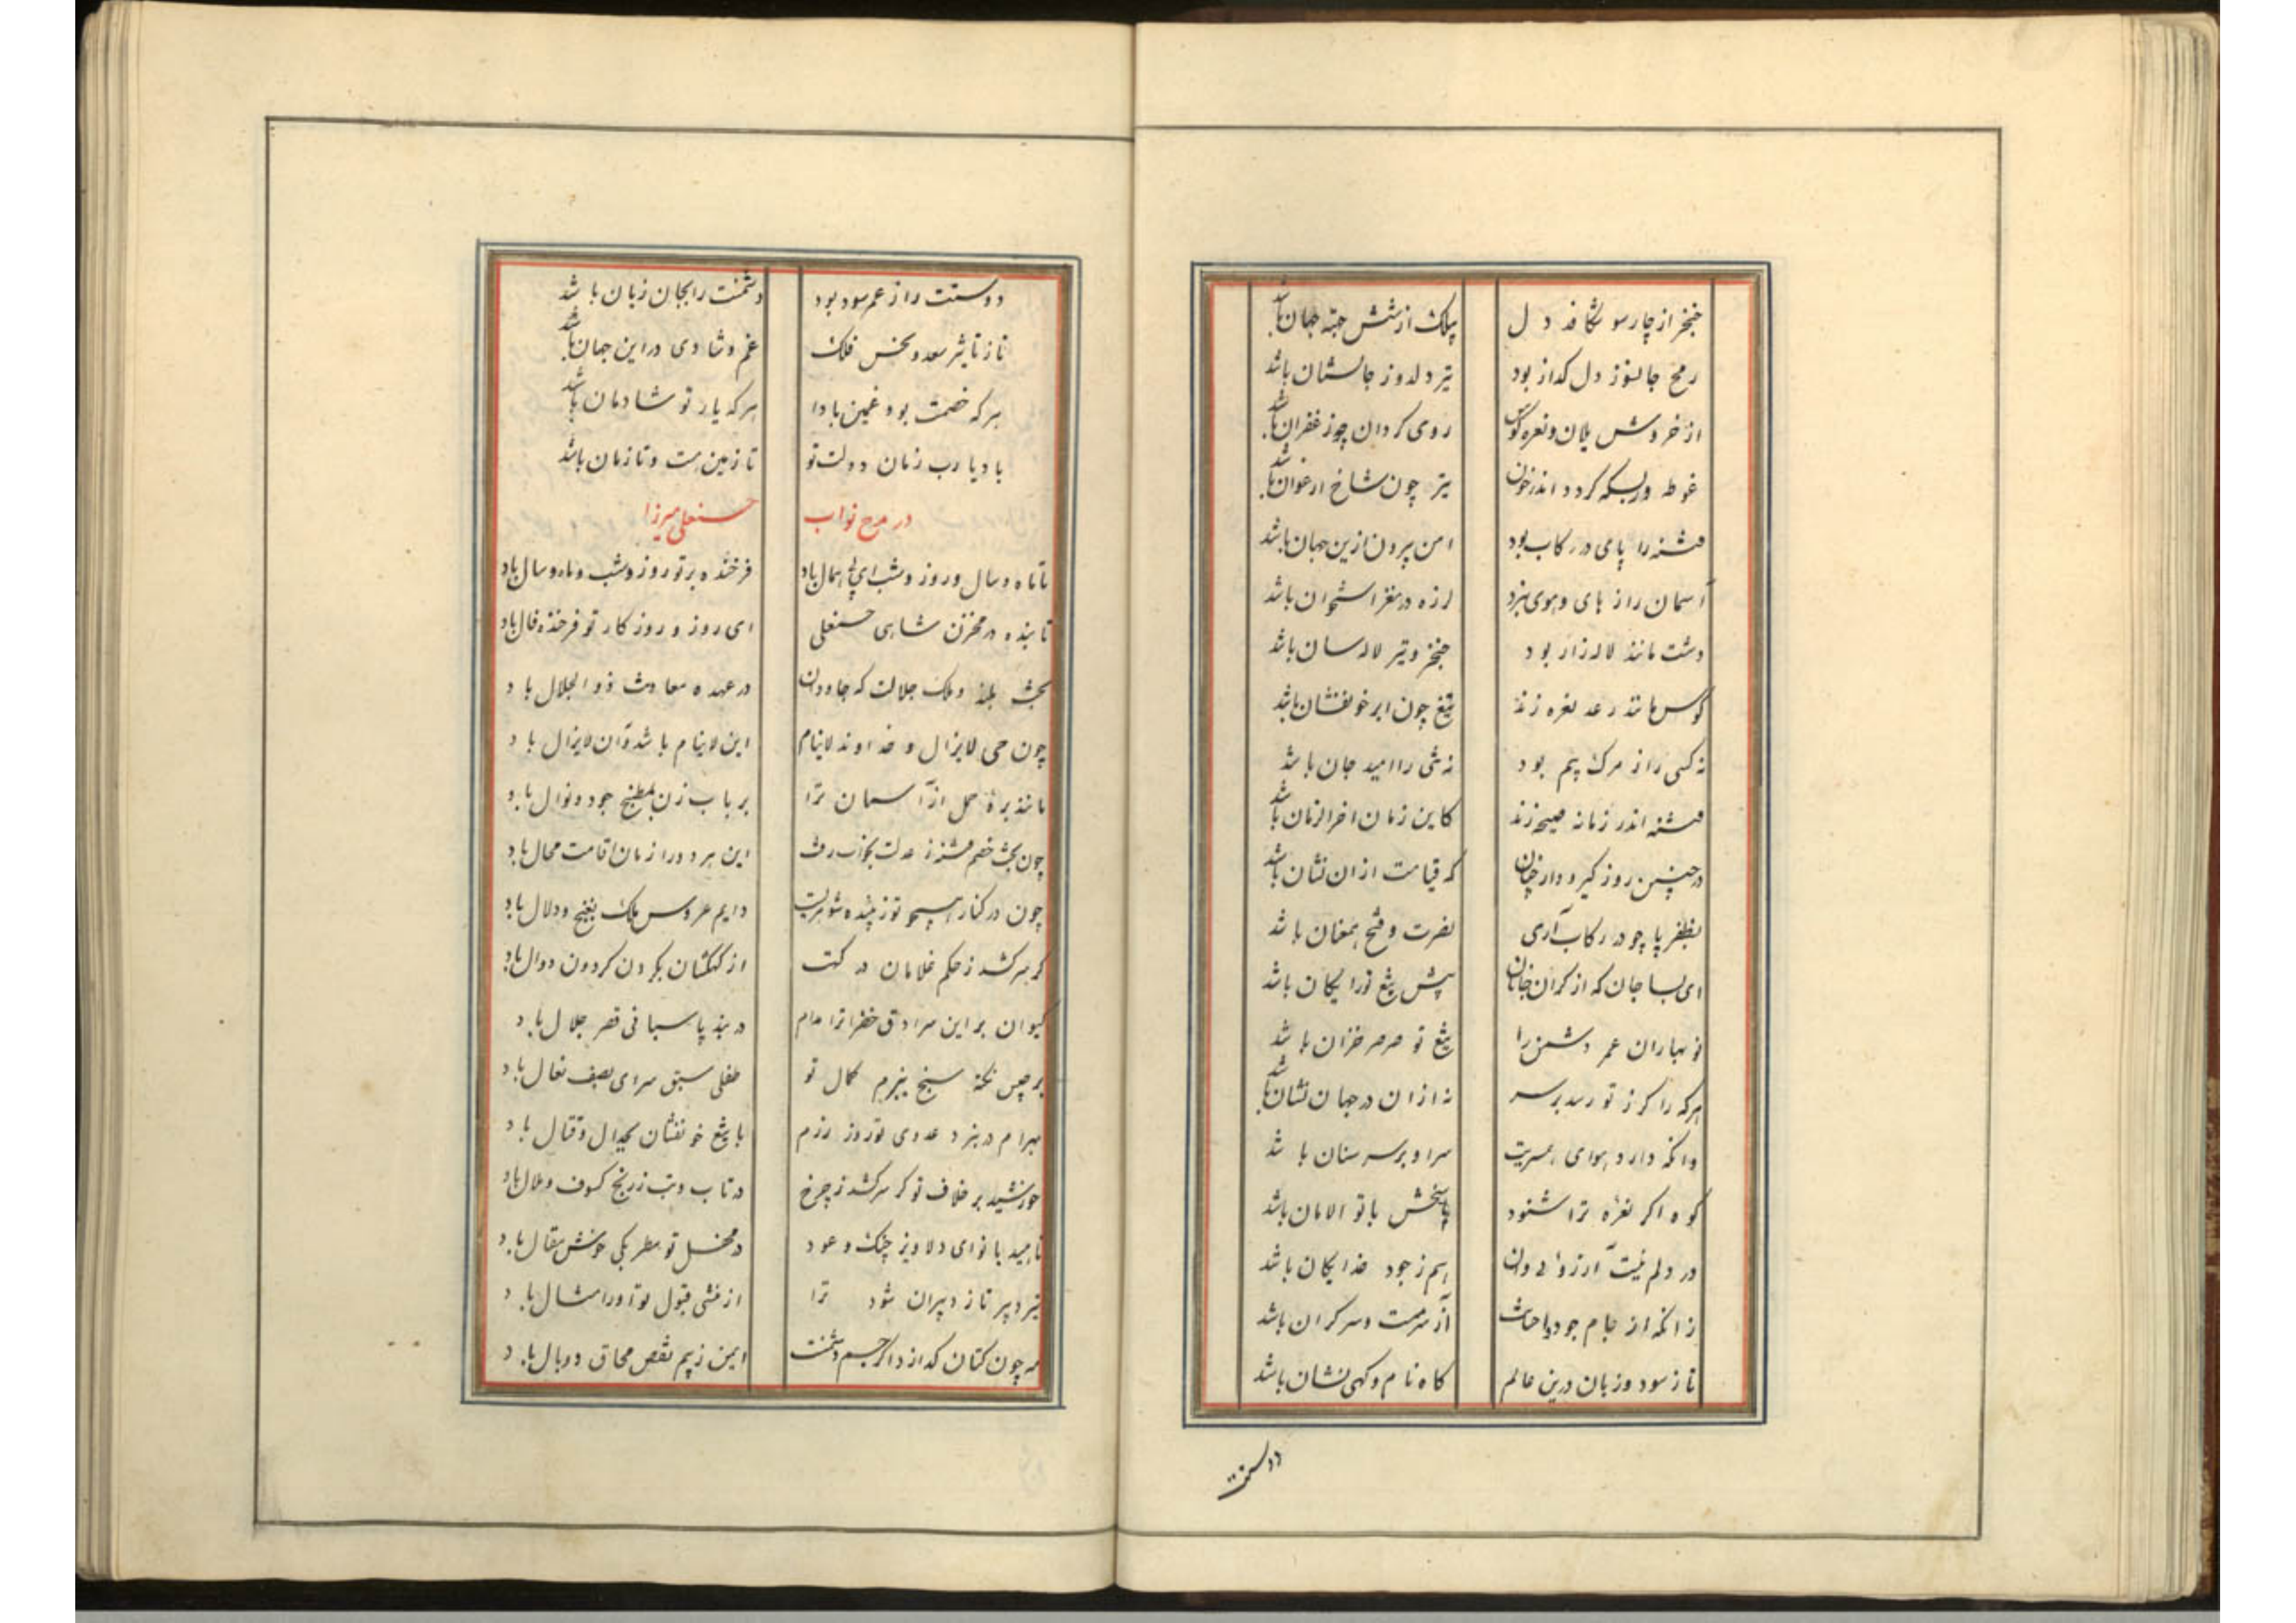 خنجر از چار سو شکافد دل پیلک از شش جهة جهان باشد
رمح جانسوز دل کداز بود تیر دلدوز جانستان باشد
از خروش یلان و نعره کوس روی کردان چو زعفران باشد
غوطه ور بسکه کردد اندر خون تیر چون شاخ ارغوان باشد
فتنه را پای در رکاب بود امن بیرون ازین جهان باشد
آسمان را ز های و هوی نبرد لرزه در مغز استخوان باشد
دشت مانند لاله زار بود خنجر و تیر لاله سان باشد
کوس مانند رعد نعره زند تیغ چون ابر خونفشان باشد
نه کسی را ز مرک بیم بود نه شی را امید جان باشد
فتنه اندر زمانه صیحه زند کاین زمان اخر الزمان باشد
در چنین روز کیر و دار چنان که قیامت ازان نشان باشد
بظفر پا چو در رکاب آری نصرت و فتح همعنان باشد
ای بسا جان که از کران جانان پیش تیغ تو رایکان باشد
نو بهاران عمر دشمن را تیغ تو صرصر خزان باشد
هرکه را کرز تو رسد بر سر نه ازان در جهان نشان باشد
وانکه دارد هوای همسریت سر او بر سر سنان باشد
کوه اکر نعره ترا شنود پاسخش با تو الامان باشد
در دلم نیست آرزوئی وان هم ز جود خدایکان باشد
زانکه از جام جود مداحت آز سرمست و سر کران باشد
تا ز سود و زیان درین عالم کاه نام و کهی نشان باشد
دوستت
دوستت را ز عمر سود بود دشمنت را بجان زیان باشد
تا ز تاثیر سعد و نحس فلک غم و شادی در این جهان باشد
هر که خصمت بود غمین بادا هر که یار تو شادمان باشد
باد یا رب زمان دولت تو تا زمین هست و تا زمان باشد
در مدح نواب حسنعلی میرزا
تا ماه و سال و روز و شب ای بی همال باد فرخنده بر تو روز و شب و ماه و سال باد
تابنده در مخزن شاهی حسنعلی ای روز و روزکار تو فرخنده فال باد
بخت بلند و ملک جلالت که جاودان در عهده معاونت ذو الجلال باد
چون حی لایزال و خداوند لاینام این لاینام باشد و آن لایزال باد
مانند برهٔ حمل از آسمان ترا بر باب زن بمطبخ جود و نوال باد
چون بخت خصم فتنه ز عدلت بخواب رفت این هر دو را زمان اقامت محال باد
چون در کنار همچو تو زیبنده شوهریست دایم عروس ملک بغنج و دلال باد
کر سر کشد ز حکم غلامان درکهت از کهکشان بکردن کردون دوال باد
کیوان بر این سرادق خضرا ترا مدام در بند پاسبانی قصر جلال باد
برجیس نکته سنج ببزم کمال تو طفلی سبق سرای بصف نعال باد
بهرام در نبرد عدوی تو روز رزم با تیغ خونفشان بجدال و قتال باد
خورشید بر خلاف تو کر سر کشد ز چرخ در تاب و تب ز رنج کسوف و ملال باد
ناهید با نوای دلاویز چنک و عود در محفل تو مطربکی خوش مقال باد
تیر دبیر تا ز دبیران شود ترا از منشی قبول تو آورا مثال باد
مه چون کتان کدازد اکر جسم دشمنت ایمن ز بیم نقص محاق و وبال باد